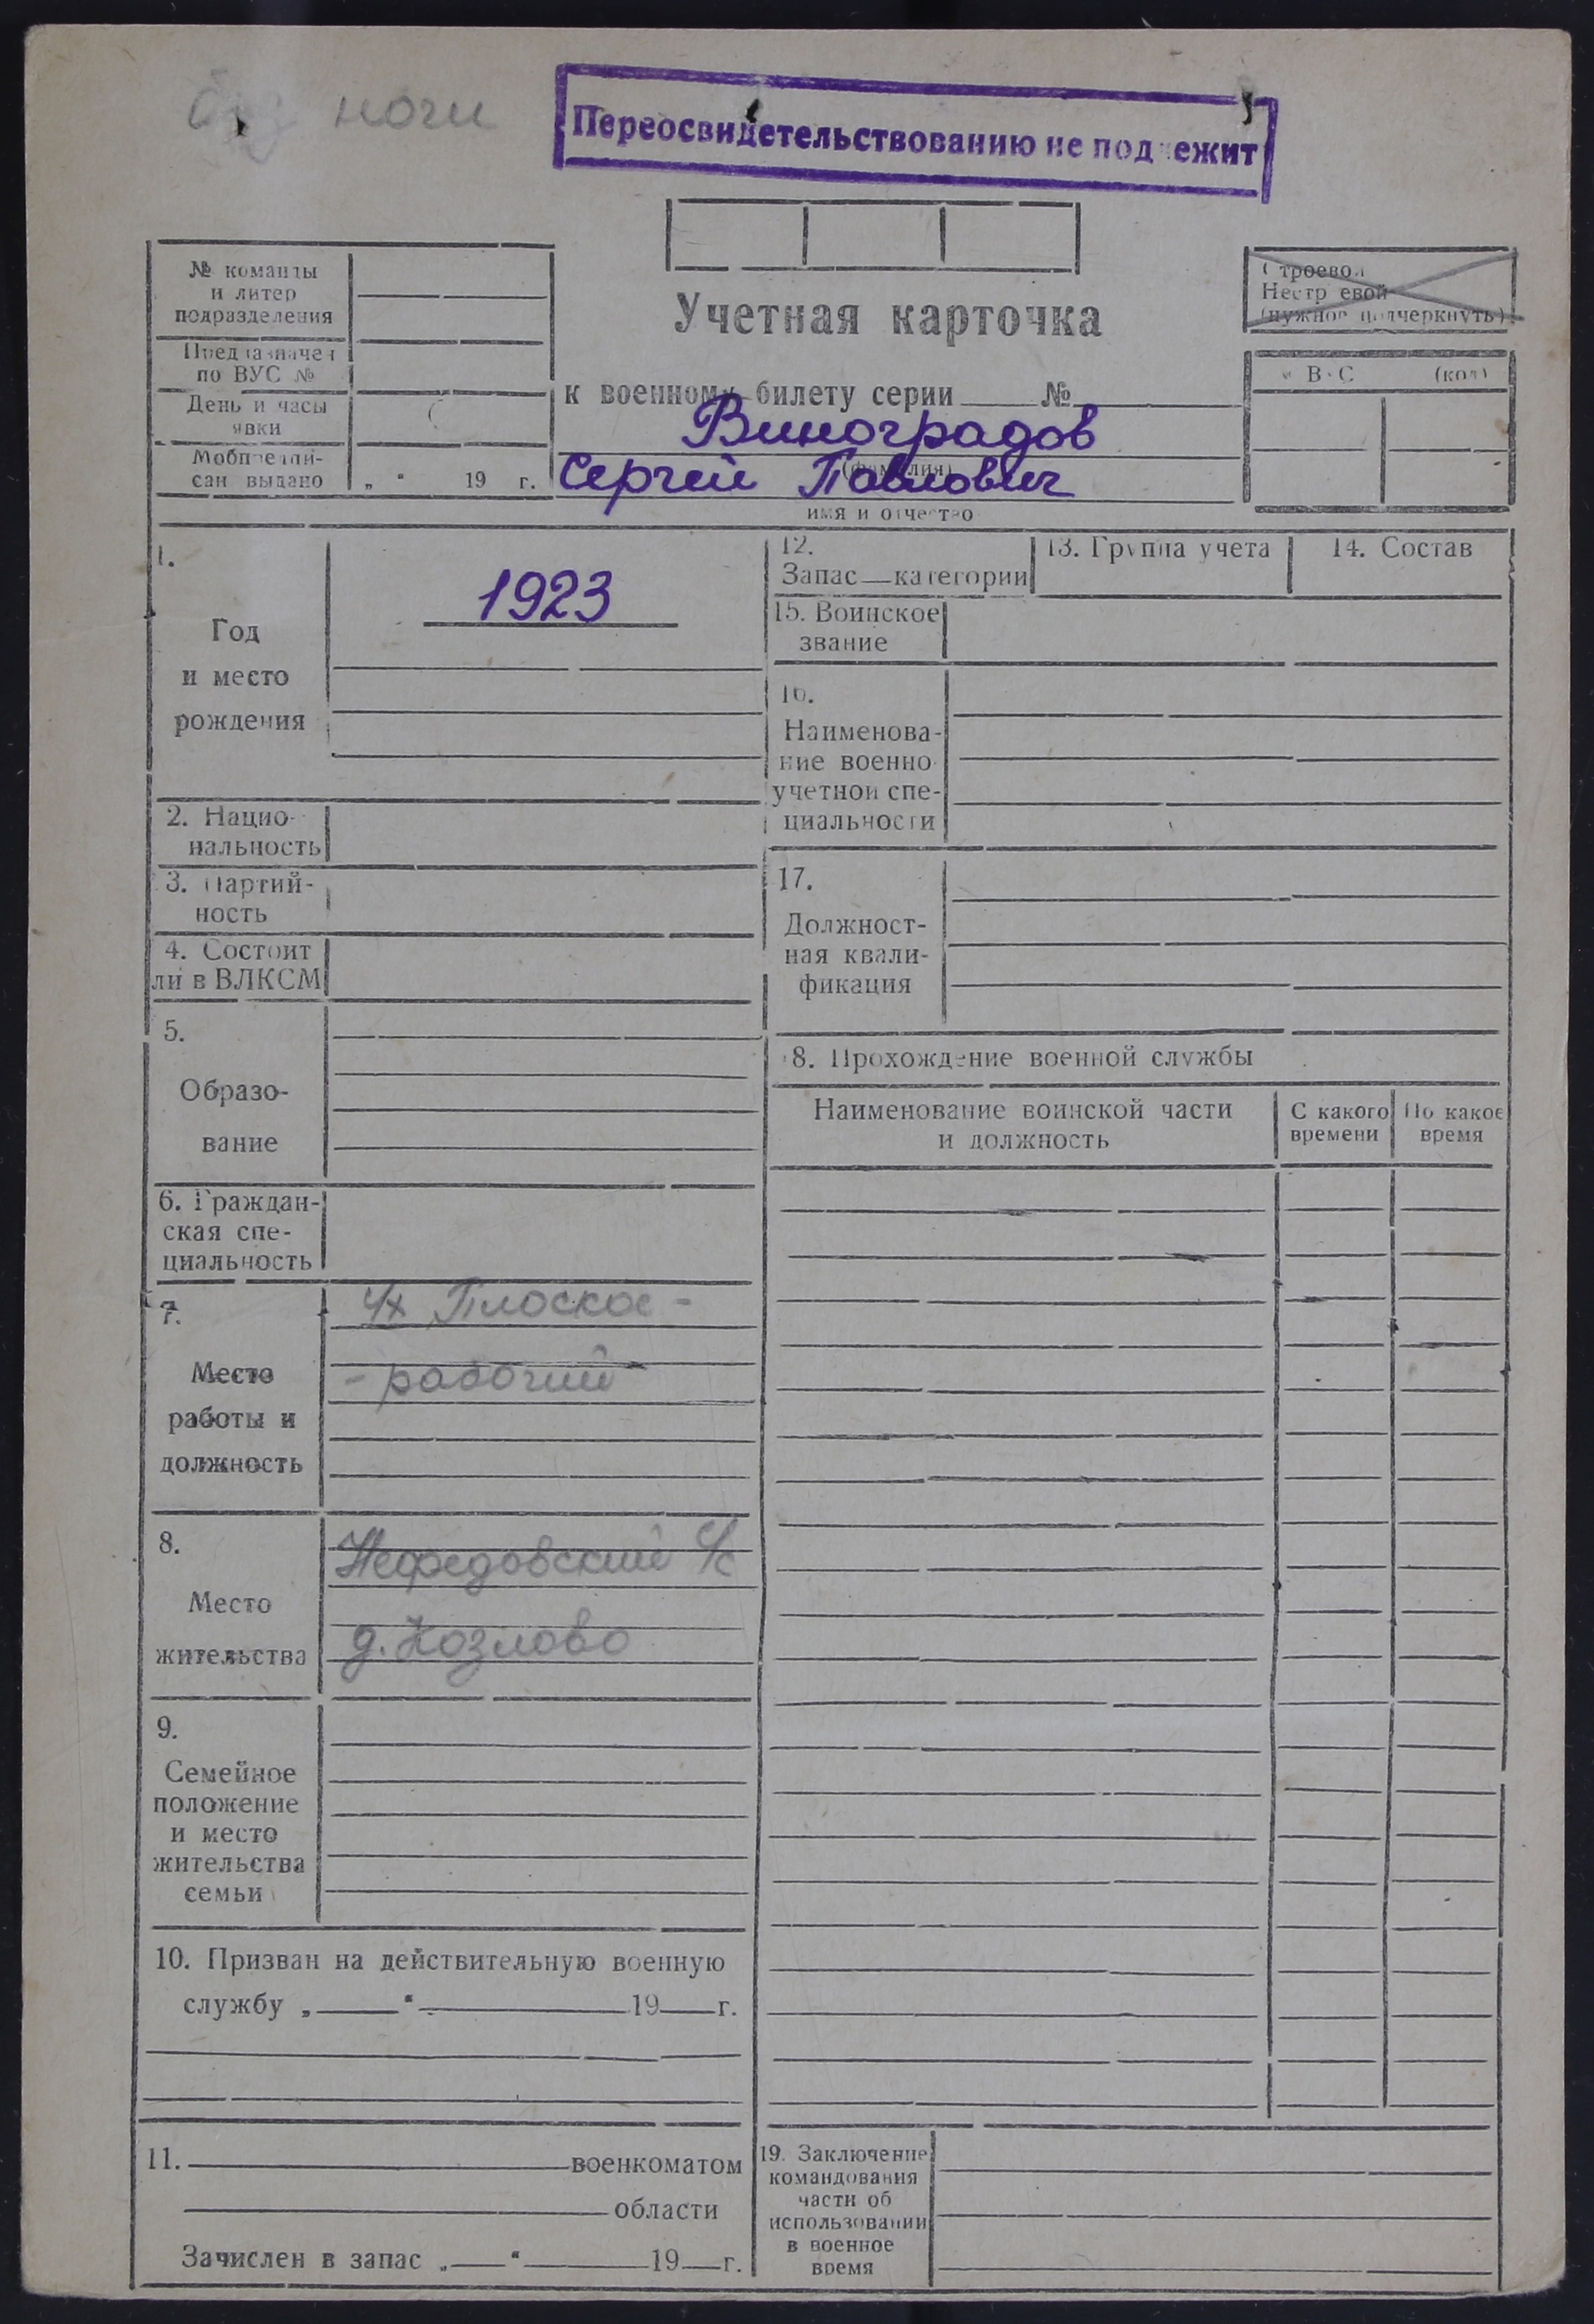 без ночи
Переосвидетельствованию не подлежит
№ команды
и литер
подразделения
Предназначен
по ВУС №
День и часы
явки
Мобпредпи-
сан выдано „ “ 19 г.
Учетная карточка
к военному билету серии №
Виноградов
(фамилия)
Сергей Павлович
имя и отчество
Строевой
Нестроевой
(нужное подчеркнуть)
ВУС (код)
1.
Год
и место
рождения
1923
2. Нацио-
нальность
3. Партий-
ность
4. Состоит
ли в ВЛКСМ
5.
Образо-
вание
6. Граждан-
ская спе-
циальность
7.
Место
работы и
должность
Плоское -
- рабочий
8.
Место
жительства
Нефедовский с/с
д. Козлово
9.
Семейное
положение
и место
жительства
семьи
10. Призван на действительную военную
службу „ “ 19 г.
11. военкоматом
области
Зачислен в запас „ “ 19 г.
12.
Запас — категории
13. Группа учета
14. Состав
15. Воинское
звание
16.
Наименова-
ние военно
учетной спе-
циальности
17.
Должност-
ная квали-
фикация
18. Прохождение военной службы
Наименование воинской части
и должность
С какого
времени
По какое
время
19. Заключение
командования
части об
использовании
в военное
время